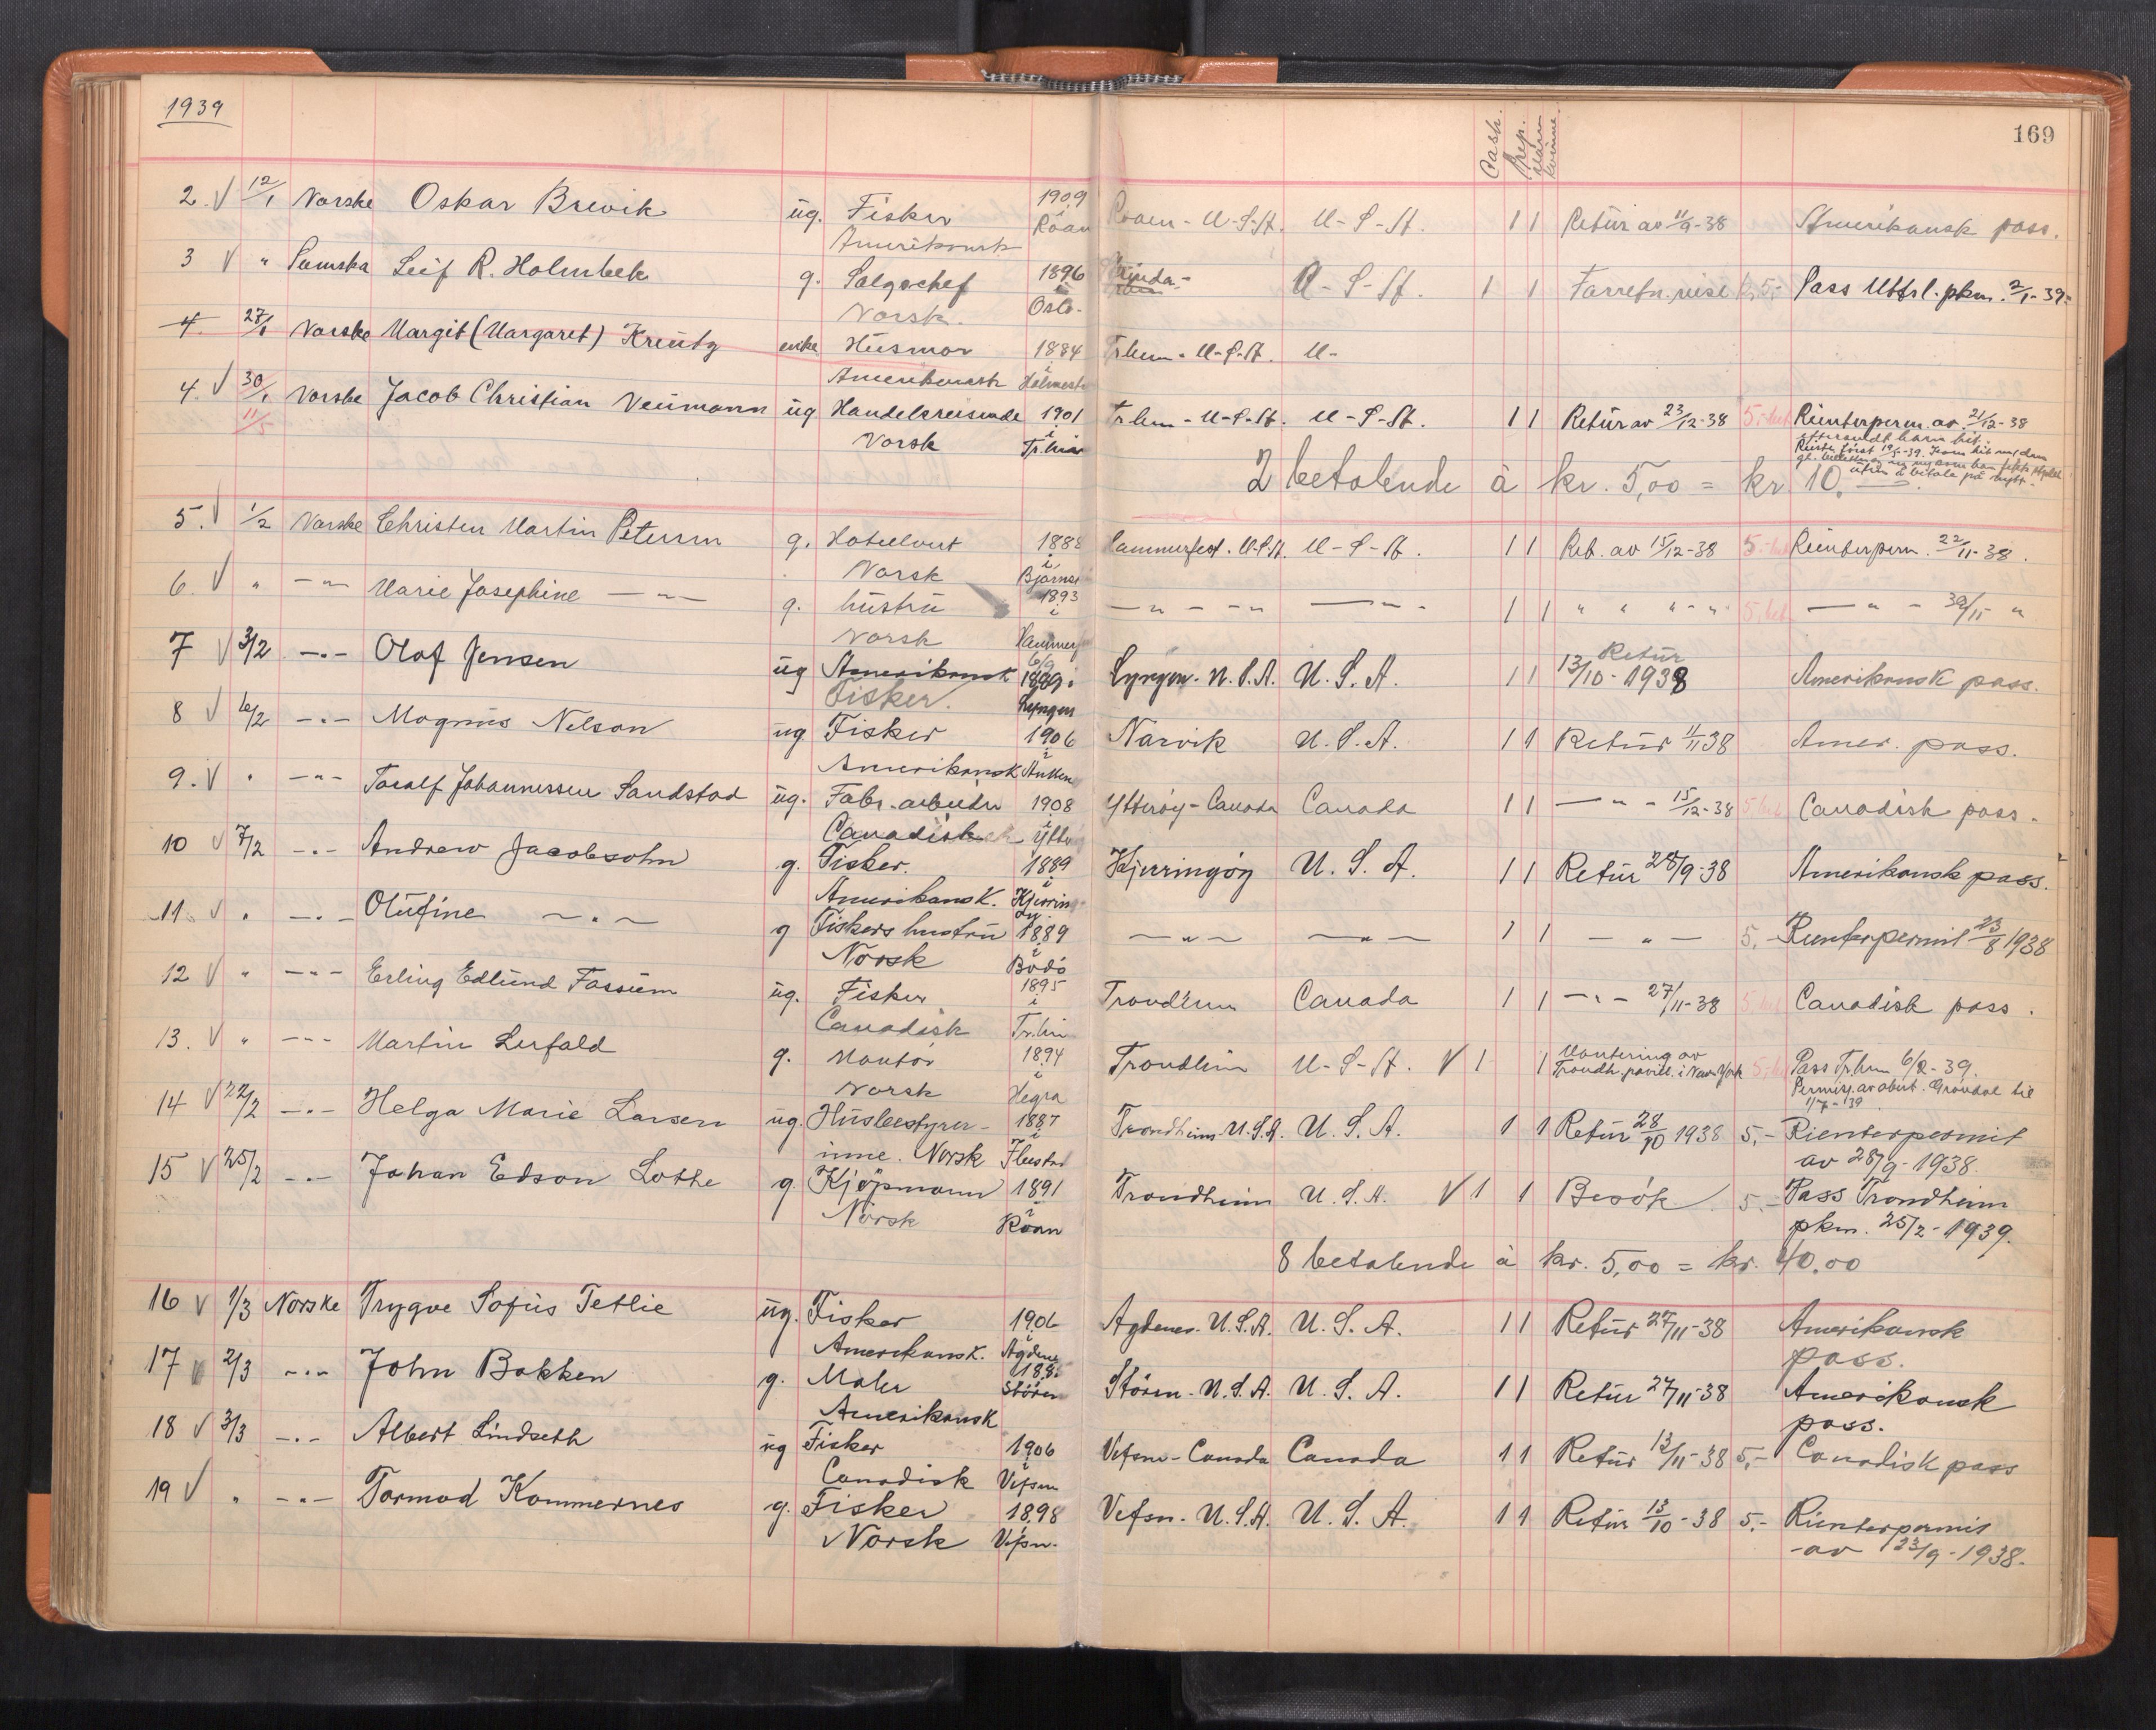 1939
169
Cash. Prep. Mann Kvinne
2. V 12/1 Norske Oskar Brevik ug. Fisker 1909 Roan - U-S-A. U-S-A. 1 1 Retur av 11/9-38 Amerikansk pass.
Amerikansk Roan
3 V " Svenska Leif R. Holmbek g. Salgschef 1896 U-S-A. 1 1 Forretn. reise kr. 5,- Pass Utfrl. pkm. 2/1-39.
Norsk. i Oslo.
4. 27/1 Norske Margit (Margaret) Kreutz enke Husmor 1884 Trhm - U-S-A. U-
Amerikansk i Holmestr
4. V 30/1 Norske Jacob Christian Neumann ug Handelsreisende 1901 Trhm - U-S-A. U-S-A. 1 1 Retur av 23/12-38 5,- bet Rienterperm. av 21/12-38
11/5 Norsk i Tr.hm
2 betalende à kr. 5,00 = kr 10.
5. V 1/2 Norske Christen Martin Petersen g. Hotelvert 1888 Hammerfest. U.S.A. U-S-A. 1 1 Ret. av 15/12-38 5,- bet Rienterperm. 22/11-38.
Norsk i
6. V " -"- Marie Josephine -"- g. hustru 1893 -"- -"- -"- 1 1 " " "-" 5,- bet -"- 30/11 "
Norsk i Hammerf
7 V 3/2 -"- Olaf Jensen ug Amerikansk 6/9 1889 i Lyngen - U.S.A. U.S.A. 1 1 Retur 13/10-1938 Amerikansk pass.
Fisker. Lyngen
8 V 6/2 -"- Magnus Nelson ug Fisker 1906 Narvik U.S.A. 1 1 Retur 11/11 38 Amer. pass.
Amerikansk i
9. V " -"- Toralf Johannessen Sandstad ug. Fabr. arbeider 1908 Ytterøy - Canada Canada 1 1 -"- 15/12-38 5,- bet Canadisk pass.
Canadisk i Ytter
10 V 7/2 -"- Andrew Jacobsohn g. Fisker. 1889 Kjerringøy U.S.A. 1 1 Retur 28/9-38 Amerikansk pass.
Amerikansk. i Kjerringøy
11. V " -"- Olufine -"- g Fiskers hustru 1889 -"- -"- 1 1 -"- 5,- Rienterpermit 23/8 1938
Norsk i Bodö
12 V " -"- Erling Edlund Fossum ug. Fisker 1895 Trondhm Canada 1 1 -"- 27/11-38 5,- bet Canadisk pass.
Canadisk i Tr.hm
13. V " -"- Martin Lerfald g. Montör 1894 Trondhm U-S-A. V 1 1 Montering av Trondh. pavill. i New York 5,- bet Pass Tr.hm 6/2-39.
Norsk i Hegra Permisj. av abut. Gröndal til 1/7-'39
14 V 22/2 -"- Helga Marie Larsen ug. Husbestyrer- 1887 Trondheim U.S.A. U.S.A. 1 1 Retur 28/10 1938 5,- Rienterpermit
inne. Norsk i av 28/9-1938.
15 V 25/2 -"- Johan Edson Lothe g. Kjöpmann 1891 Trondheim U.S.A. V 1 1 Besök 5,- Pass Trondheim
Norsk i Roan pkm. 25/2-1939.
8 betalende à kr. 5,00 = kr. 40.00
16 V 1/3 Norske Trygve Sofus Tetlie ug. Fisker 1906 Agdenes - U.S.A. U.S.A. 1 1 Retur 27/11-38 Amerikansk
Amerikansk. i Agdenes pass.
17 V 2/3 -"- John Bakken g. Maler Stören Stören - U.S.A. U.S.A. 1 1 Retur 27/11-38 Amerikansk
Amerikansk pass.
18 V 3/3 -"- Albert Lindseth ug Fisker 1906 Vefsn - Canada Canada 1 1 Retur 13/11-38 5,- Canadisk pass
Canadisk i Vefsn
19 V " -"- Tormod Kommernes g. Fisker 1898 Vefsn - U.S.A. U.S.A. 1 1 Retur 13/10-38 5,- Rienterpermit
Norsk Vefsn - av 23/9-1938.